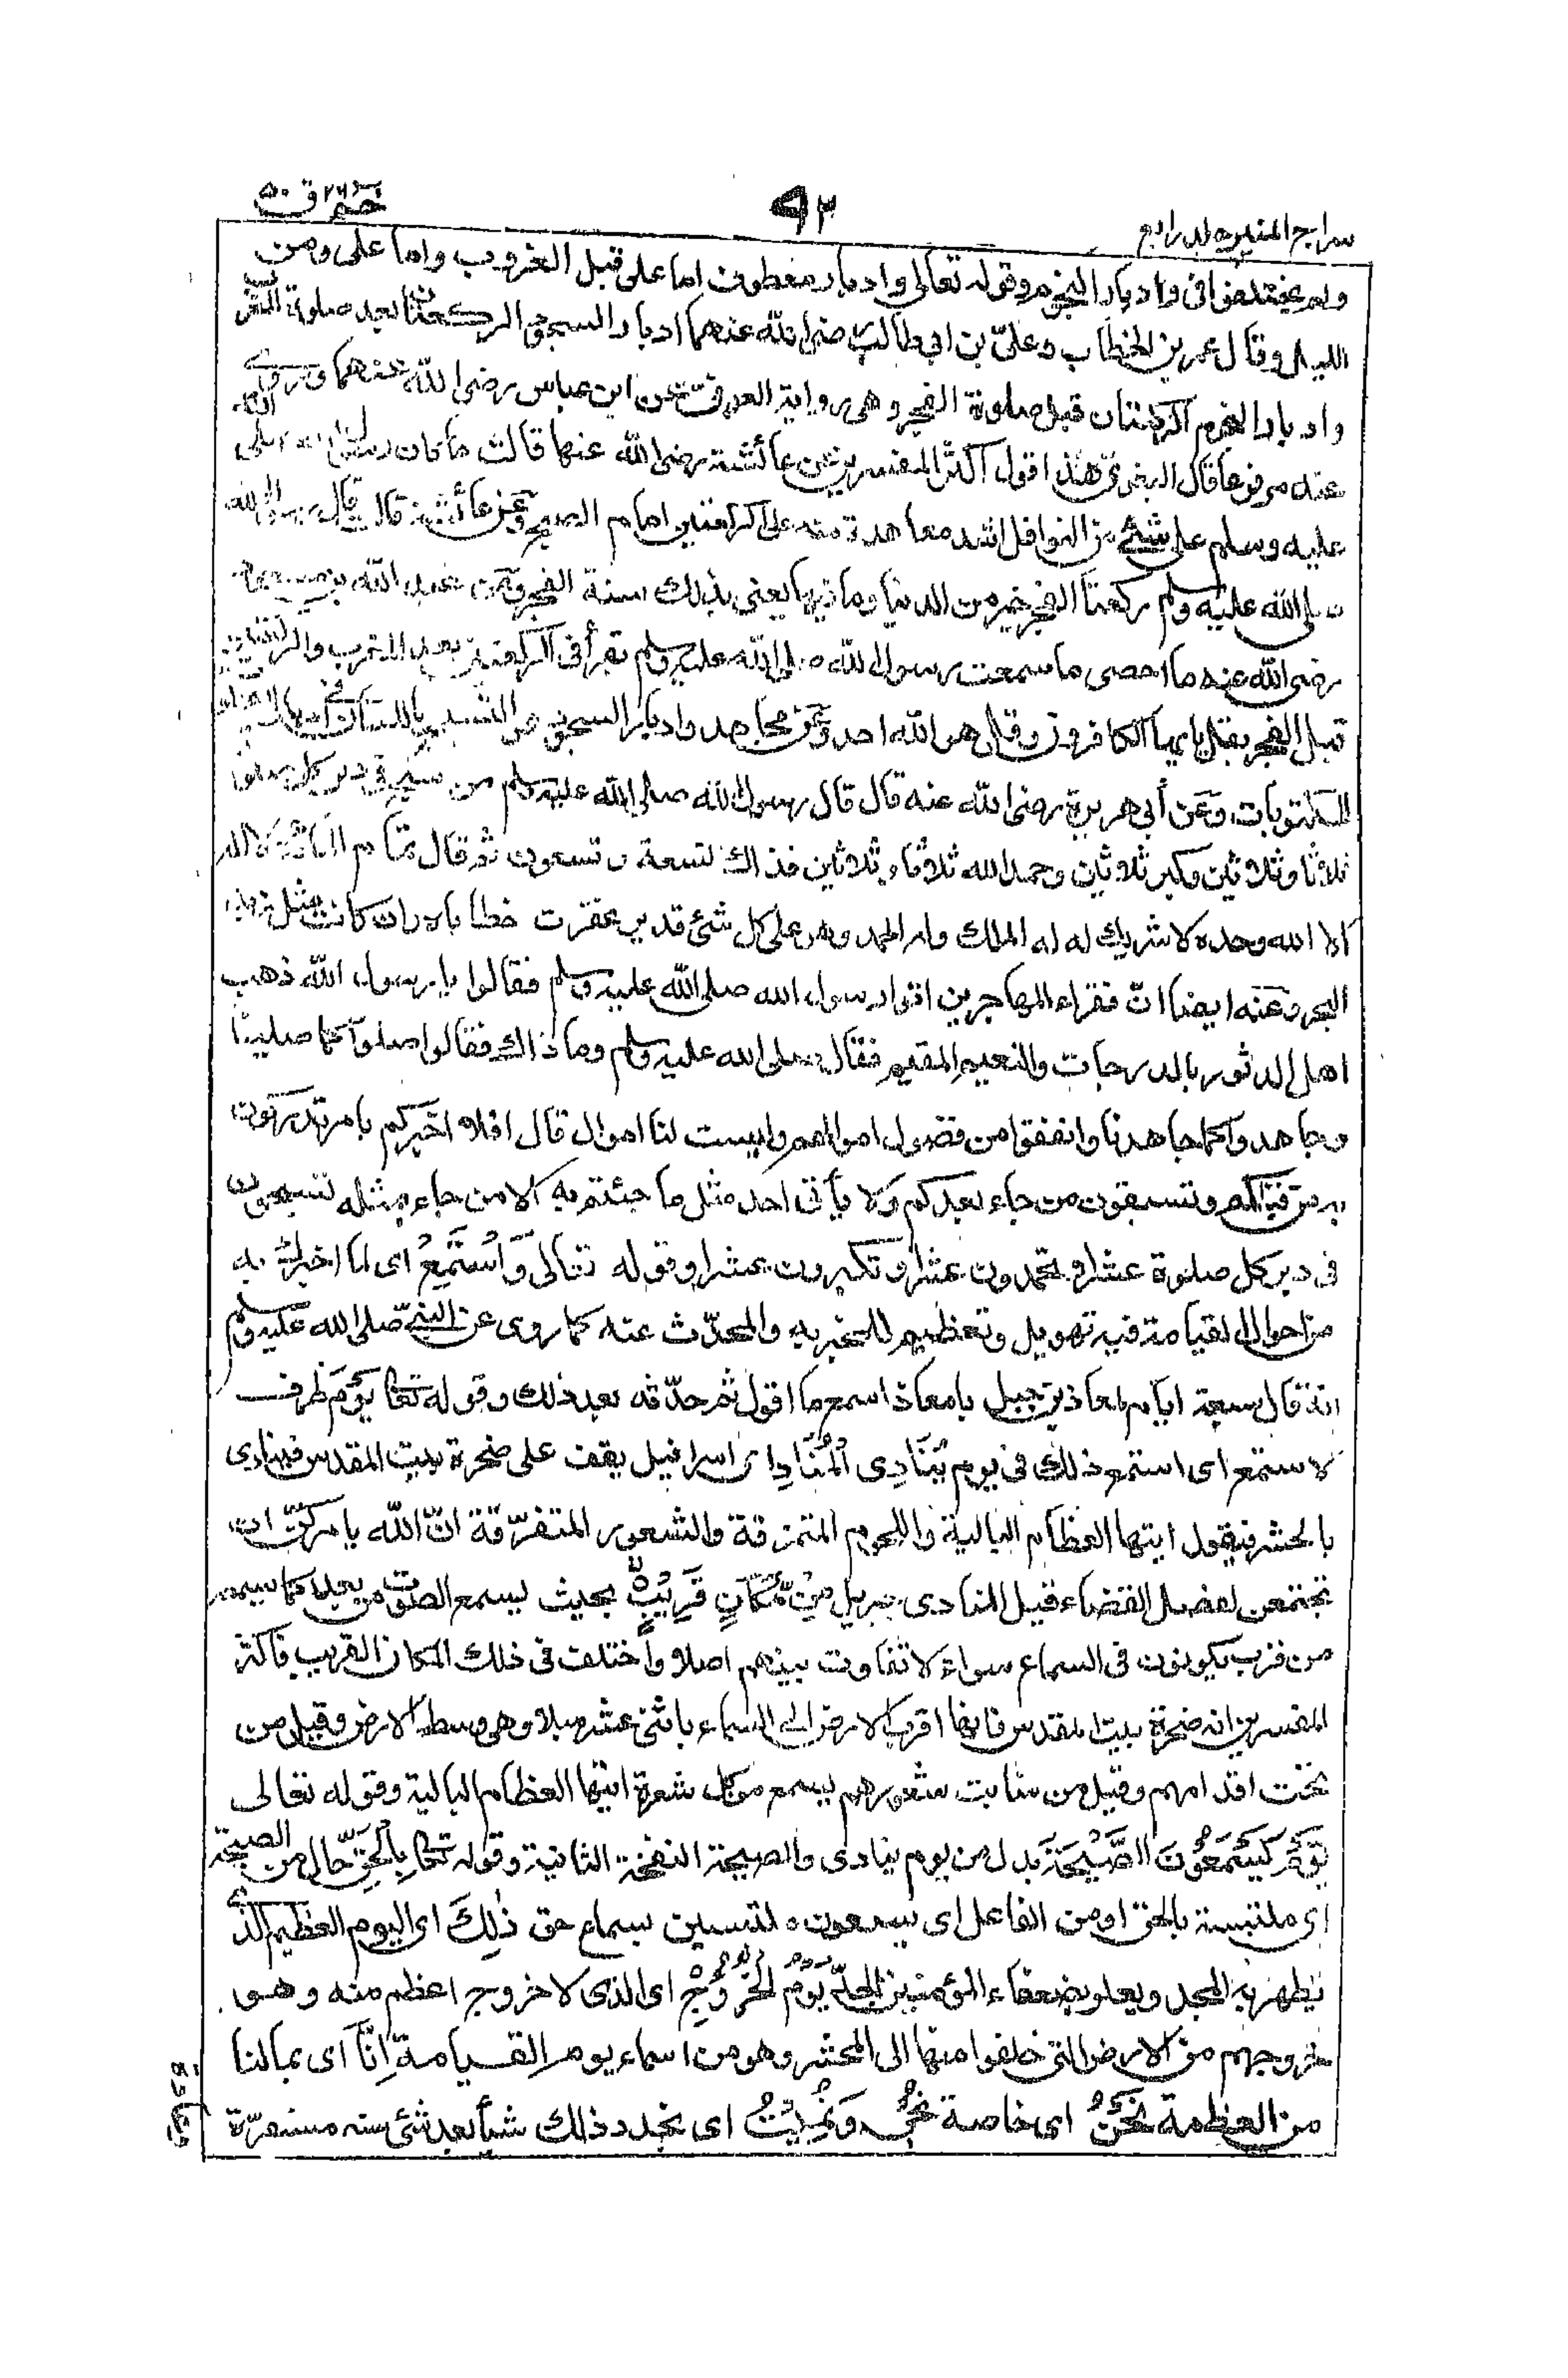 سراج المنير جلد رابع
٩٢
حم ٢٦ ق ٥٠
ولم يختلفوا فى وادبار النجوم وقوله تعالى وادبار معطوف اما على قبل الغروب واما على ومن
الليل وقال عمر بن الخطاب وعلىّ بن ابى طالب رضى الله عنهما ادبار السجود الركعتان بعد صلوة المغرب
وادبار النجوم الركعتان قبل صلوة الفجر وهى رواية العوفى عن ابن عباس رضى الله عنهما وروى
عنه مرفوعا قال البغوى هذا قول اكثر المفسرين وعن عائشة رضى الله عنها قالت ما كان رسول الله صلى
عليه وسلم على شئ من النوافل اشد معاهدة منه على الركعتين امام الصبح وعن عائشة قالت قال رسول الله
صلى الله عليه وسلم ركعتا الفجر خير من الدنيا وما فيها يعنى بذلك سنة الفجر وعن عبد الله بن مسعود
رضى الله عنه ما احصى ما سمعت رسول الله صلى الله عليه وسلم يقرأ فى الركعتين بعد المغرب والركعتين
قبل الفجر بقل يايها الكافرون وقل هو الله احد وعن مجاهد وادبار السجود هو التسبيح باللسان فى ادبار الصلوات
المكتوبات وعن أبى هريرة رضى الله عنه قال قال رسول الله صلى الله عليه وسلم من سبح فى دبر كل صلوة
ثلاثا وثلاثين وكبر ثلاثين وحمد الله ثلاثا وثلاثين فذاك تسعة وتسعون ثم قال تمام المائة لا اله
الا الله وحده لا شريك له له الملك وله الحمد وهو على كل شئ قدير غفرت خطاياه وان كانت مثل زبد
البحر وعنه ايضا انّ فقراء المهاجرين اتوا رسول الله صلى الله عليه وسلم فقالوا يا رسول الله ذهب
اهل الدثور بالدرجات والنعيم المقيم فقال صلى الله عليه وسلم وما ذاك فقالوا صلوا كما صلينا
وجاهدوا كما جاهدنا وانفقوا من فضول اموالهم وليست لنا اموال قال افلا اخبركم بامر تدركون
به من قبلكم وتسبقون من جاء بعدكم ولا يأتى احد مثل ما جئتم به الا من جاء بمثله تسبحون
فى دبر كل صلوة عشرا وتحمدون عشرا وتكبرون عشرا وقوله تعالى وَاسْتَمِعْ اى لما اخبرك به
من احوال القيامة فيه تهويل وتعظيم للمخبر به والمحدّث عنه كما روى عن النبىّ صلى الله عليه وسلم
انه قال سبعة ايام لمعاذ بن جبل يا معاذ اسمع ما اقول ثم حدّثه بعد ذلك وقوله تعالى يَوْمَ ظرف
لاستمع اى استمع ذلك فى يوم يُنَادِى الْمُنَادِ اى اسرافيل يقف على صخرة بيت المقدس فينادى
بالحشر فيقول ايتها العظام البالية واللحوم المتمزقة والشعور المتفرّقة انّ الله يامركنّ ان
تجتمعن لفصل القضاء وقيل المنادى جبريل مِنْ مَّكَانٍ قَرِيْبٍ بحيث يسمع الصوت من بعيد كما يسمعه
من قرب يكونون فى السماع سواء لا تفاوت بينهم اصلا واختلف فى ذلك المكان القريب فاكثر
المفسرين انه صخرة بيت المقدس فانها اقرب الارض الى السماء باثنى عشر ميلا وهى وسط الارض وقيل من
تحت اقدامهم وقيل من منابت شعورهم يسمع من كل شعرة ايتها العظام البالية وقوله تعالى
يَوْمَ يَسْمَعُوْنَ الصَّيْحَةَ بدل من يوم ينادى والصيحة النفخة الثانية وقوله تعالى بِالْحَقِّ حال من الصيحة
اى ملتبسة بالحق او من الفاعل اى يسمعون ملتبسين بسماع حق ذٰلِكَ اى اليوم العظيم الذى
يظهر به المجد ويعلو بضعفاء المؤمنين المجدّ يَوْمُ الْخُرُوْجِ اى الذى لا خروج اعظم منه وهو
خروجهم من الارض التى خلقوا منها الى المحشر وهو من اسماء يوم القيامة اِنَّا اى بمالنا
من العظمة نَحْنُ اى خاصة نُحْىٖ وَنُمِيْتُ اى نجدد ذلك شيأ بعد شئ سنه مستمرّة